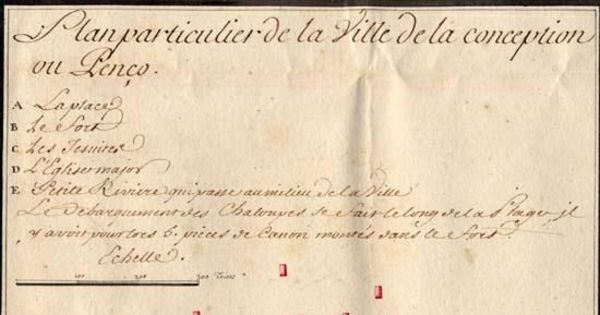 Plan particulier de la Ville de la conception
ou Penço.
A La place
B Le Fort
C Les Jesuites
D L'Eglise major
E Petite Riviere qui passe au milieu de la Ville
Le Debarquement des Chaloupes se fait le long de la Plage, il
y avoit pour lors 6. pieces de Canon montés dans le Fort.
Echelle.
100 200 300 Toises